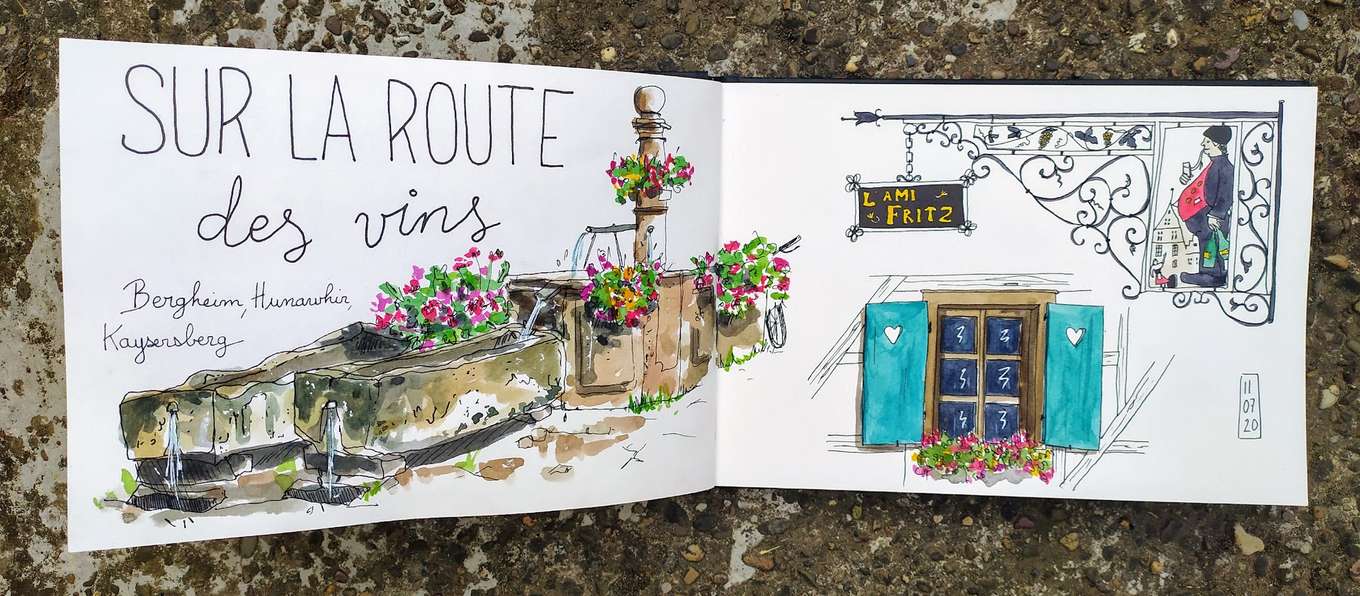 SUR LA ROUTE
des vins
Bergheim, Hunawhir,
Kaysersberg
L AMI
FRITZ
11
07
20